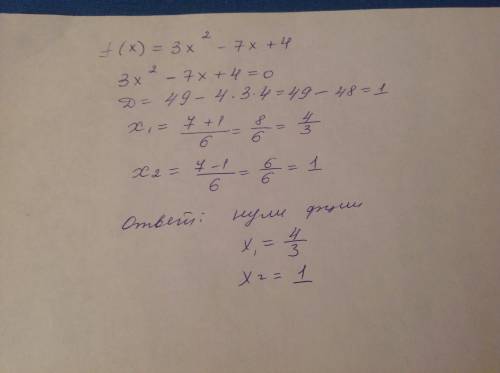 f(x) = 3x² - 7x + 4
3x² - 7x + 4 = 0
D = 49 - 4 · 3 · 4 = 49 - 48 = 1
x₁ = (7 + 1)/6 = 8/6 = 4/3
x₂ = (7 - 1)/6 = 6/6 = 1
Ответ: нули
x₁ = 4/3
x₂ = 1